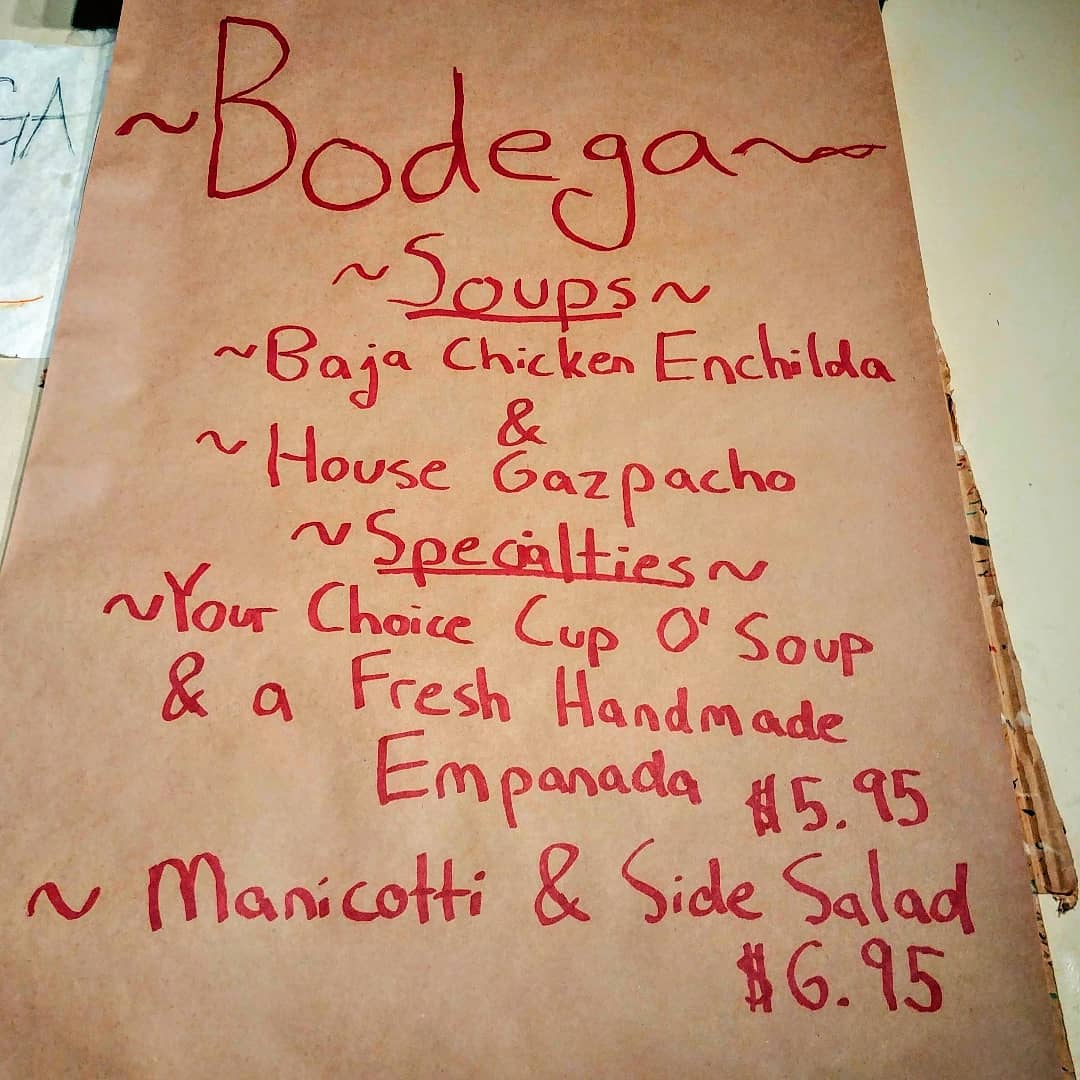 GA
~Bodega~
~Soups~
~Baja Chicken Enchilda
&
~House Gazpacho
~Specialties~
~Your Choice Cup O' Soup
& a Fresh Handmade
Empanada $5.95
~ Manicotti & Side Salad
$6.95